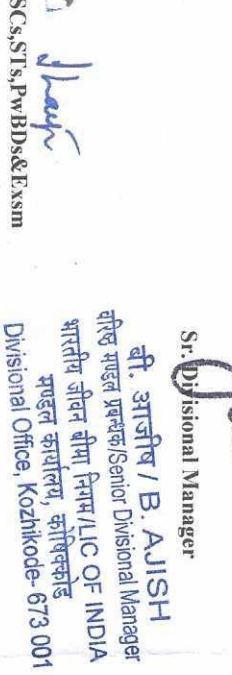 Sr. Divisional Manager
बी. अजीष / B. AJISH
वरिष्ठ मण्डल प्रबन्धक/Senior Divisional Manager
भारतीय जीवन बीमा निगम/LIC OF INDIA
मण्डल कार्यालय, कोषिक्कोड
Divisional Office, Kozhikode- 673 001
SCs,STs,PwBDs&Exsm